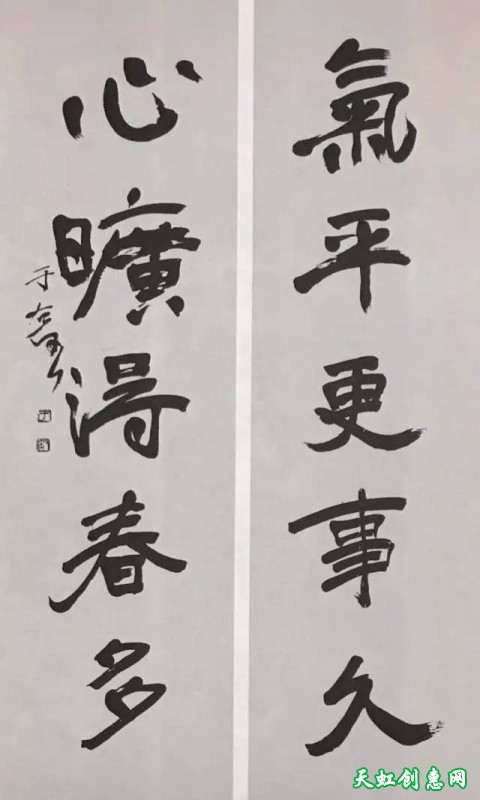 氣平更事久
心曠得春多
于右任
天虹创惠网